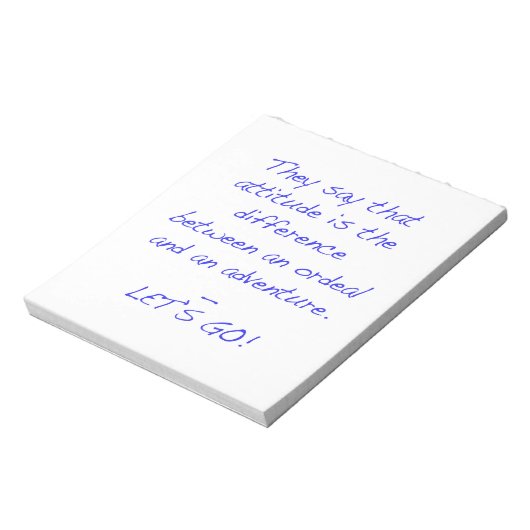 They say that
attitude is the
difference
between an ordeal
and an adventure.
—
LET'S GO!